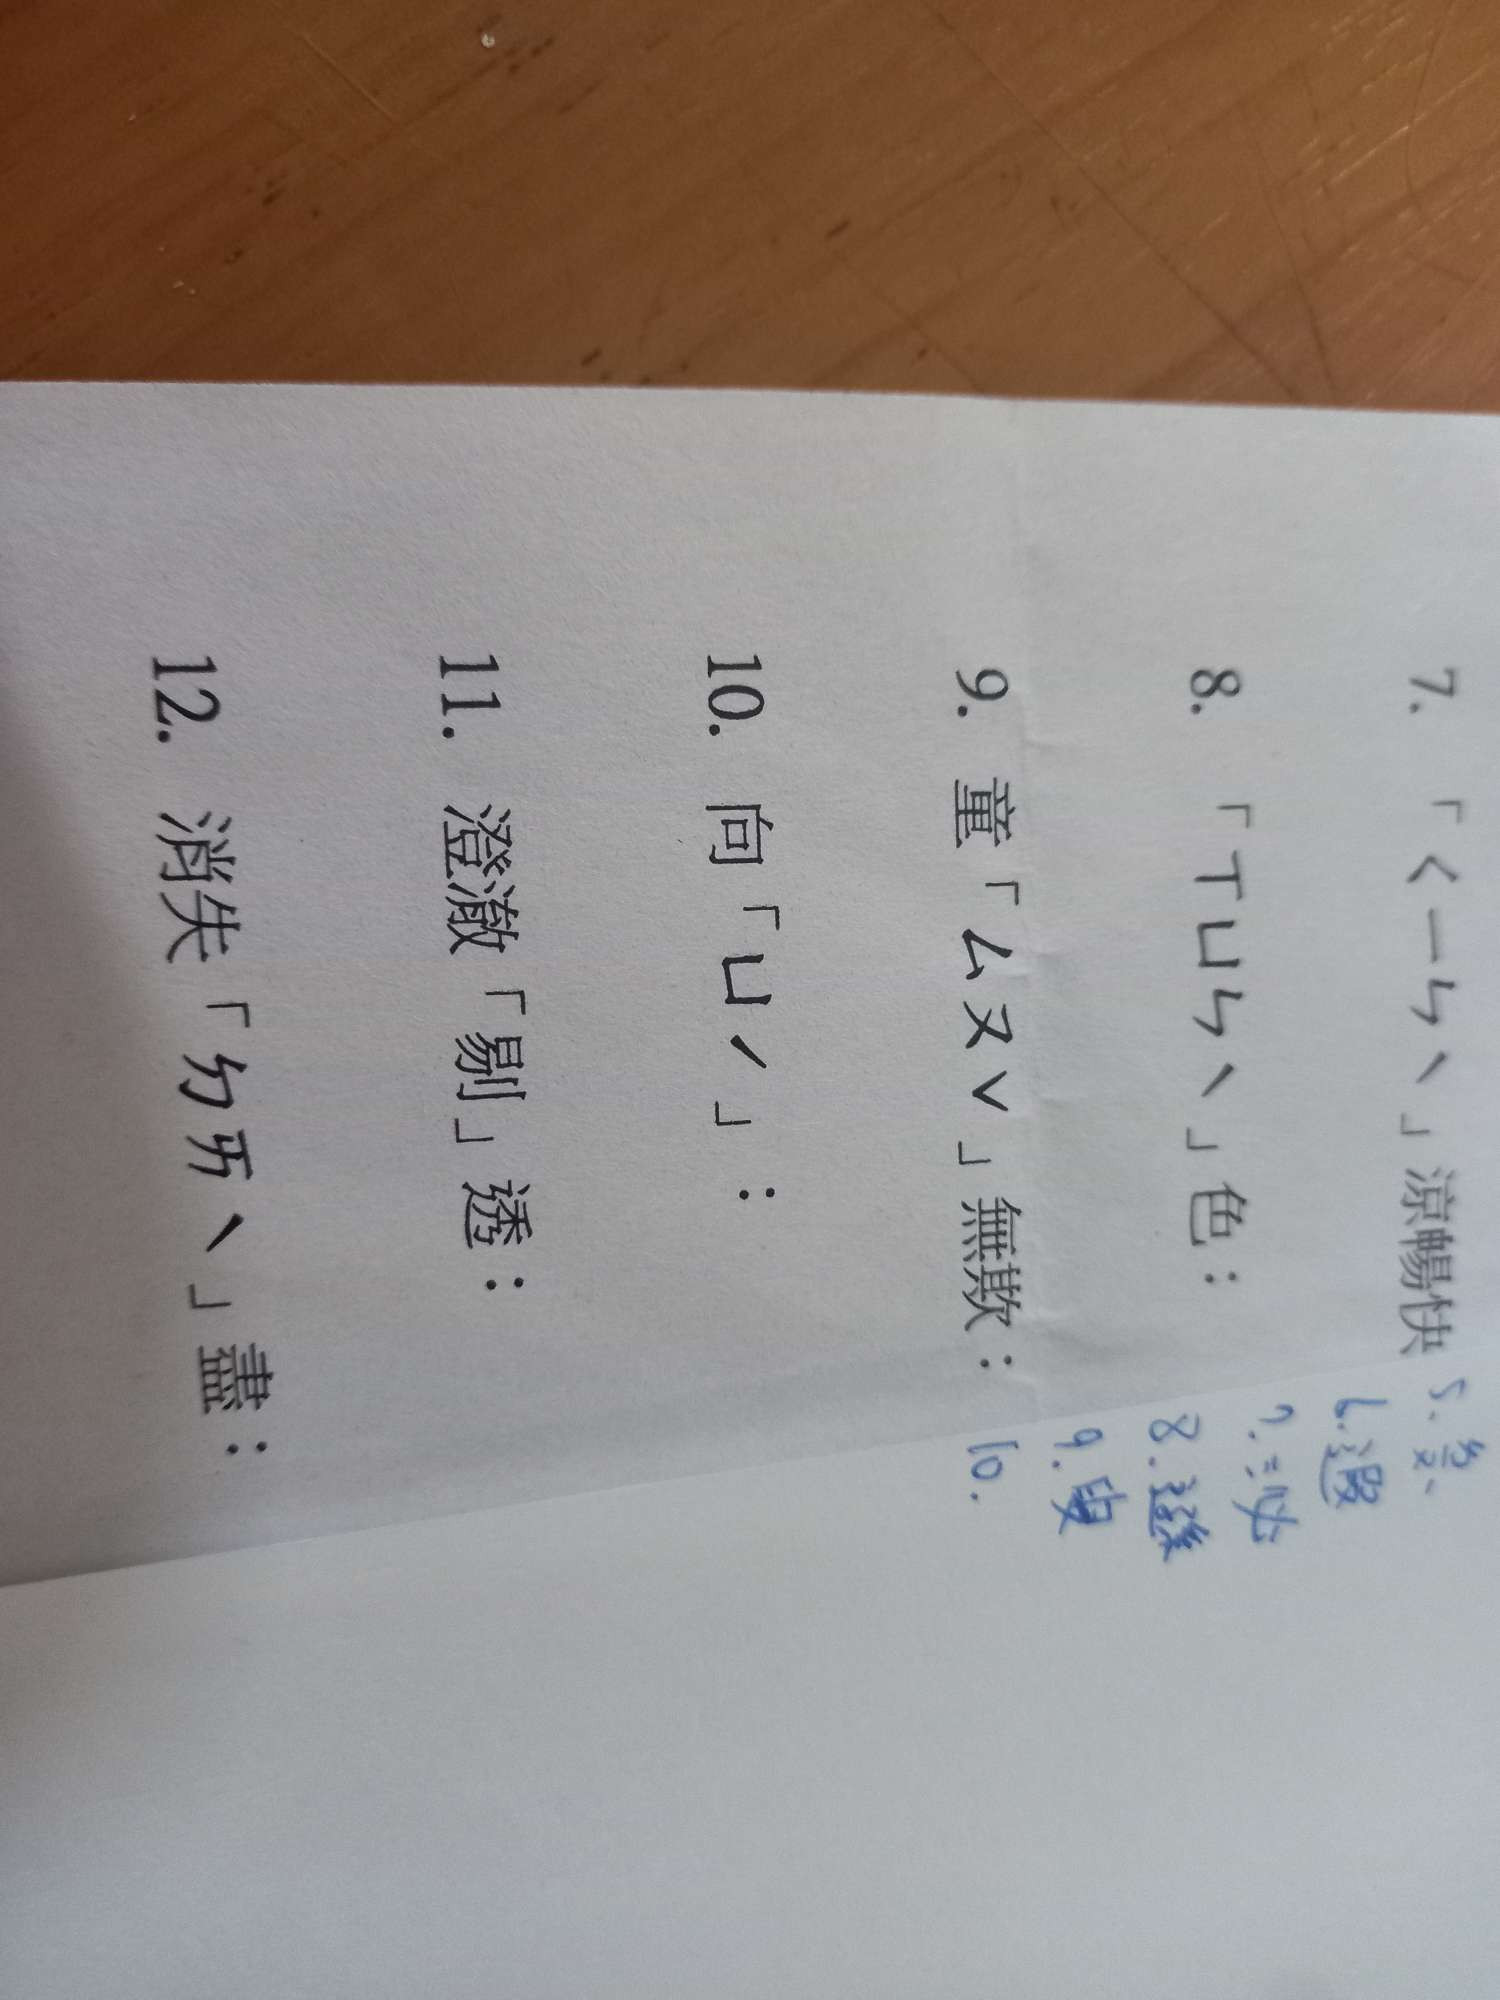 7. 「ㄑㄧㄣˋ」涼暢快
8. 「ㄒㄩㄣˋ」色：
9. 童「ㄙㄡˇ」無欺：
10. 向「ㄩˊ」：
11. 澄澈「剔」透：
12. 消失「ㄉㄞˋ」盡：
5. ㄉㄡˋ
6. 遐
7. 沁
8. 遜
9. 叟
10.